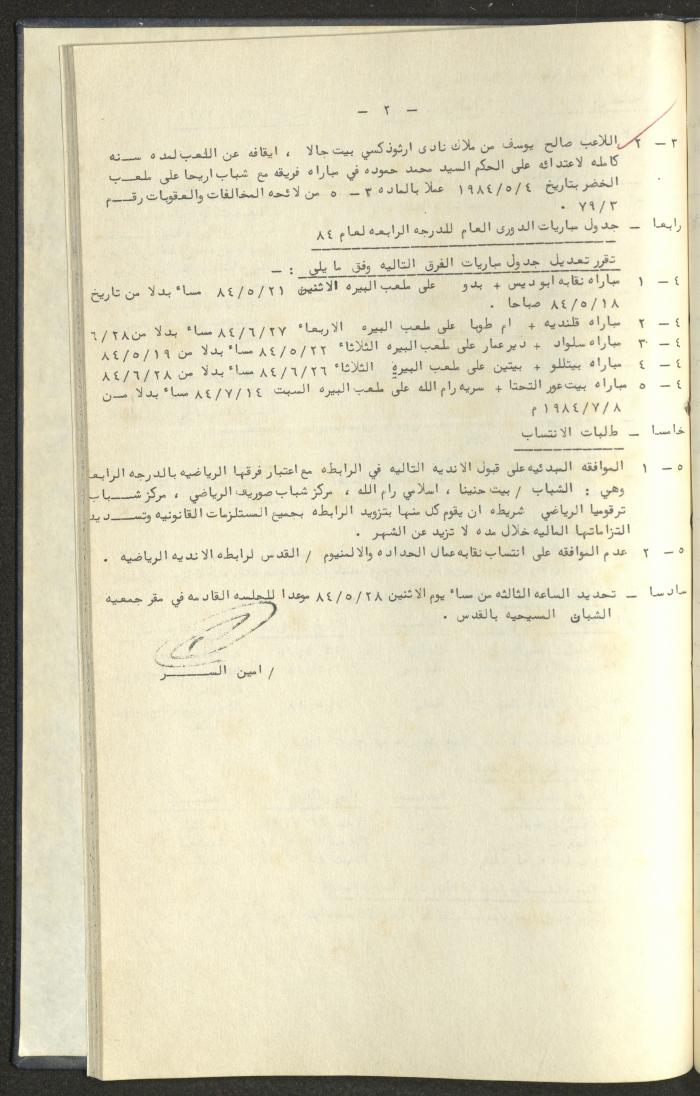 - ٢ -
٣ - ٢ اللاعب صالح يوسف من ملاك نادى ارثوذكسي بيت جالا ، ايقافه عن اللعب لمده سنه
كامله لاعتدائه على الحكم السيد محمد حموده في مباراه فريقه مع شباب اريحا على ملعب
الخضر بتاريخ ١٩٨٤/٥/٤ عملا بالماده ٣ - ٥ من لائحه المخالفات والعقوبات رقم
٧٩/٣ .
رابعا - جدول مباريات الدورى العام للدرجه الرابعه لعام ٨٤
تقرر تعديل جدول مباريات الفرق التاليه وفق مايلي : -
٤ - ١ مباراه نقابه ابوديس + بدو على ملعب البيره الاثنين ٨٤/٥/٢١ مساء بدلا من تاريخ
٨٤/٥/١٨ صباحا .
٤ - ٢ مباراه قلنديه + ام طوبا على ملعب البيره الاربعاء ٨٤/٦/٢٧ مساء بدلا من ٦/٢٨
٤ - ٣ مباراه سلواد + ديرعمار على ملعب البيره الثلاثاء ٨٤/٥/٢٢ مساء بدلا من ٨٤/٥/١٩
٤ - ٤ مباراه بيتللو + بيتين على ملعب البيره الثلاثاء ٨٤/٦/٢٦ مساء بدلا من ٨٤/٦/٢٨
٤ - ٥ مباراه بيت عور التحتا + سريه رام الله على ملعب البيره السبت ٨٤/٧/١٤ مساء بدلا من
١٩٨٤/٧/٨ م
خامسا - طلبات الانتساب
٥ - ١ الموافقه المبدئيه على قبول الانديه التاليه في الرابطه مع اعتبار فرقها الرياضيه بالدرجه الرابعه
وهي : الشباب / بيت حنينا ، اسلامي رام الله ، مركز شباب صوريف الرياضي ، مركز شباب
ترقوميا الرياضي شريطه ان يقوم كل منها بتزويد الرابطه بجميع المستلزمات القانونيه وتسديد
التزاماتها الماليه خلال مده لا تزيد عن الشهر .
٥ - ٢ عدم الموافقه على انتساب نقابه عمال الحداده والالمنيوم / القدس لرابطه الانديه الرياضيه .
سادسا - تحديد الساعه الثالثه من مساء يوم الاثنين ٨٤/٥/٢٨ موعدا للجلسه القادمه في مقر جمعيه
الشبان المسيحيه بالقدس .
/ امين السر